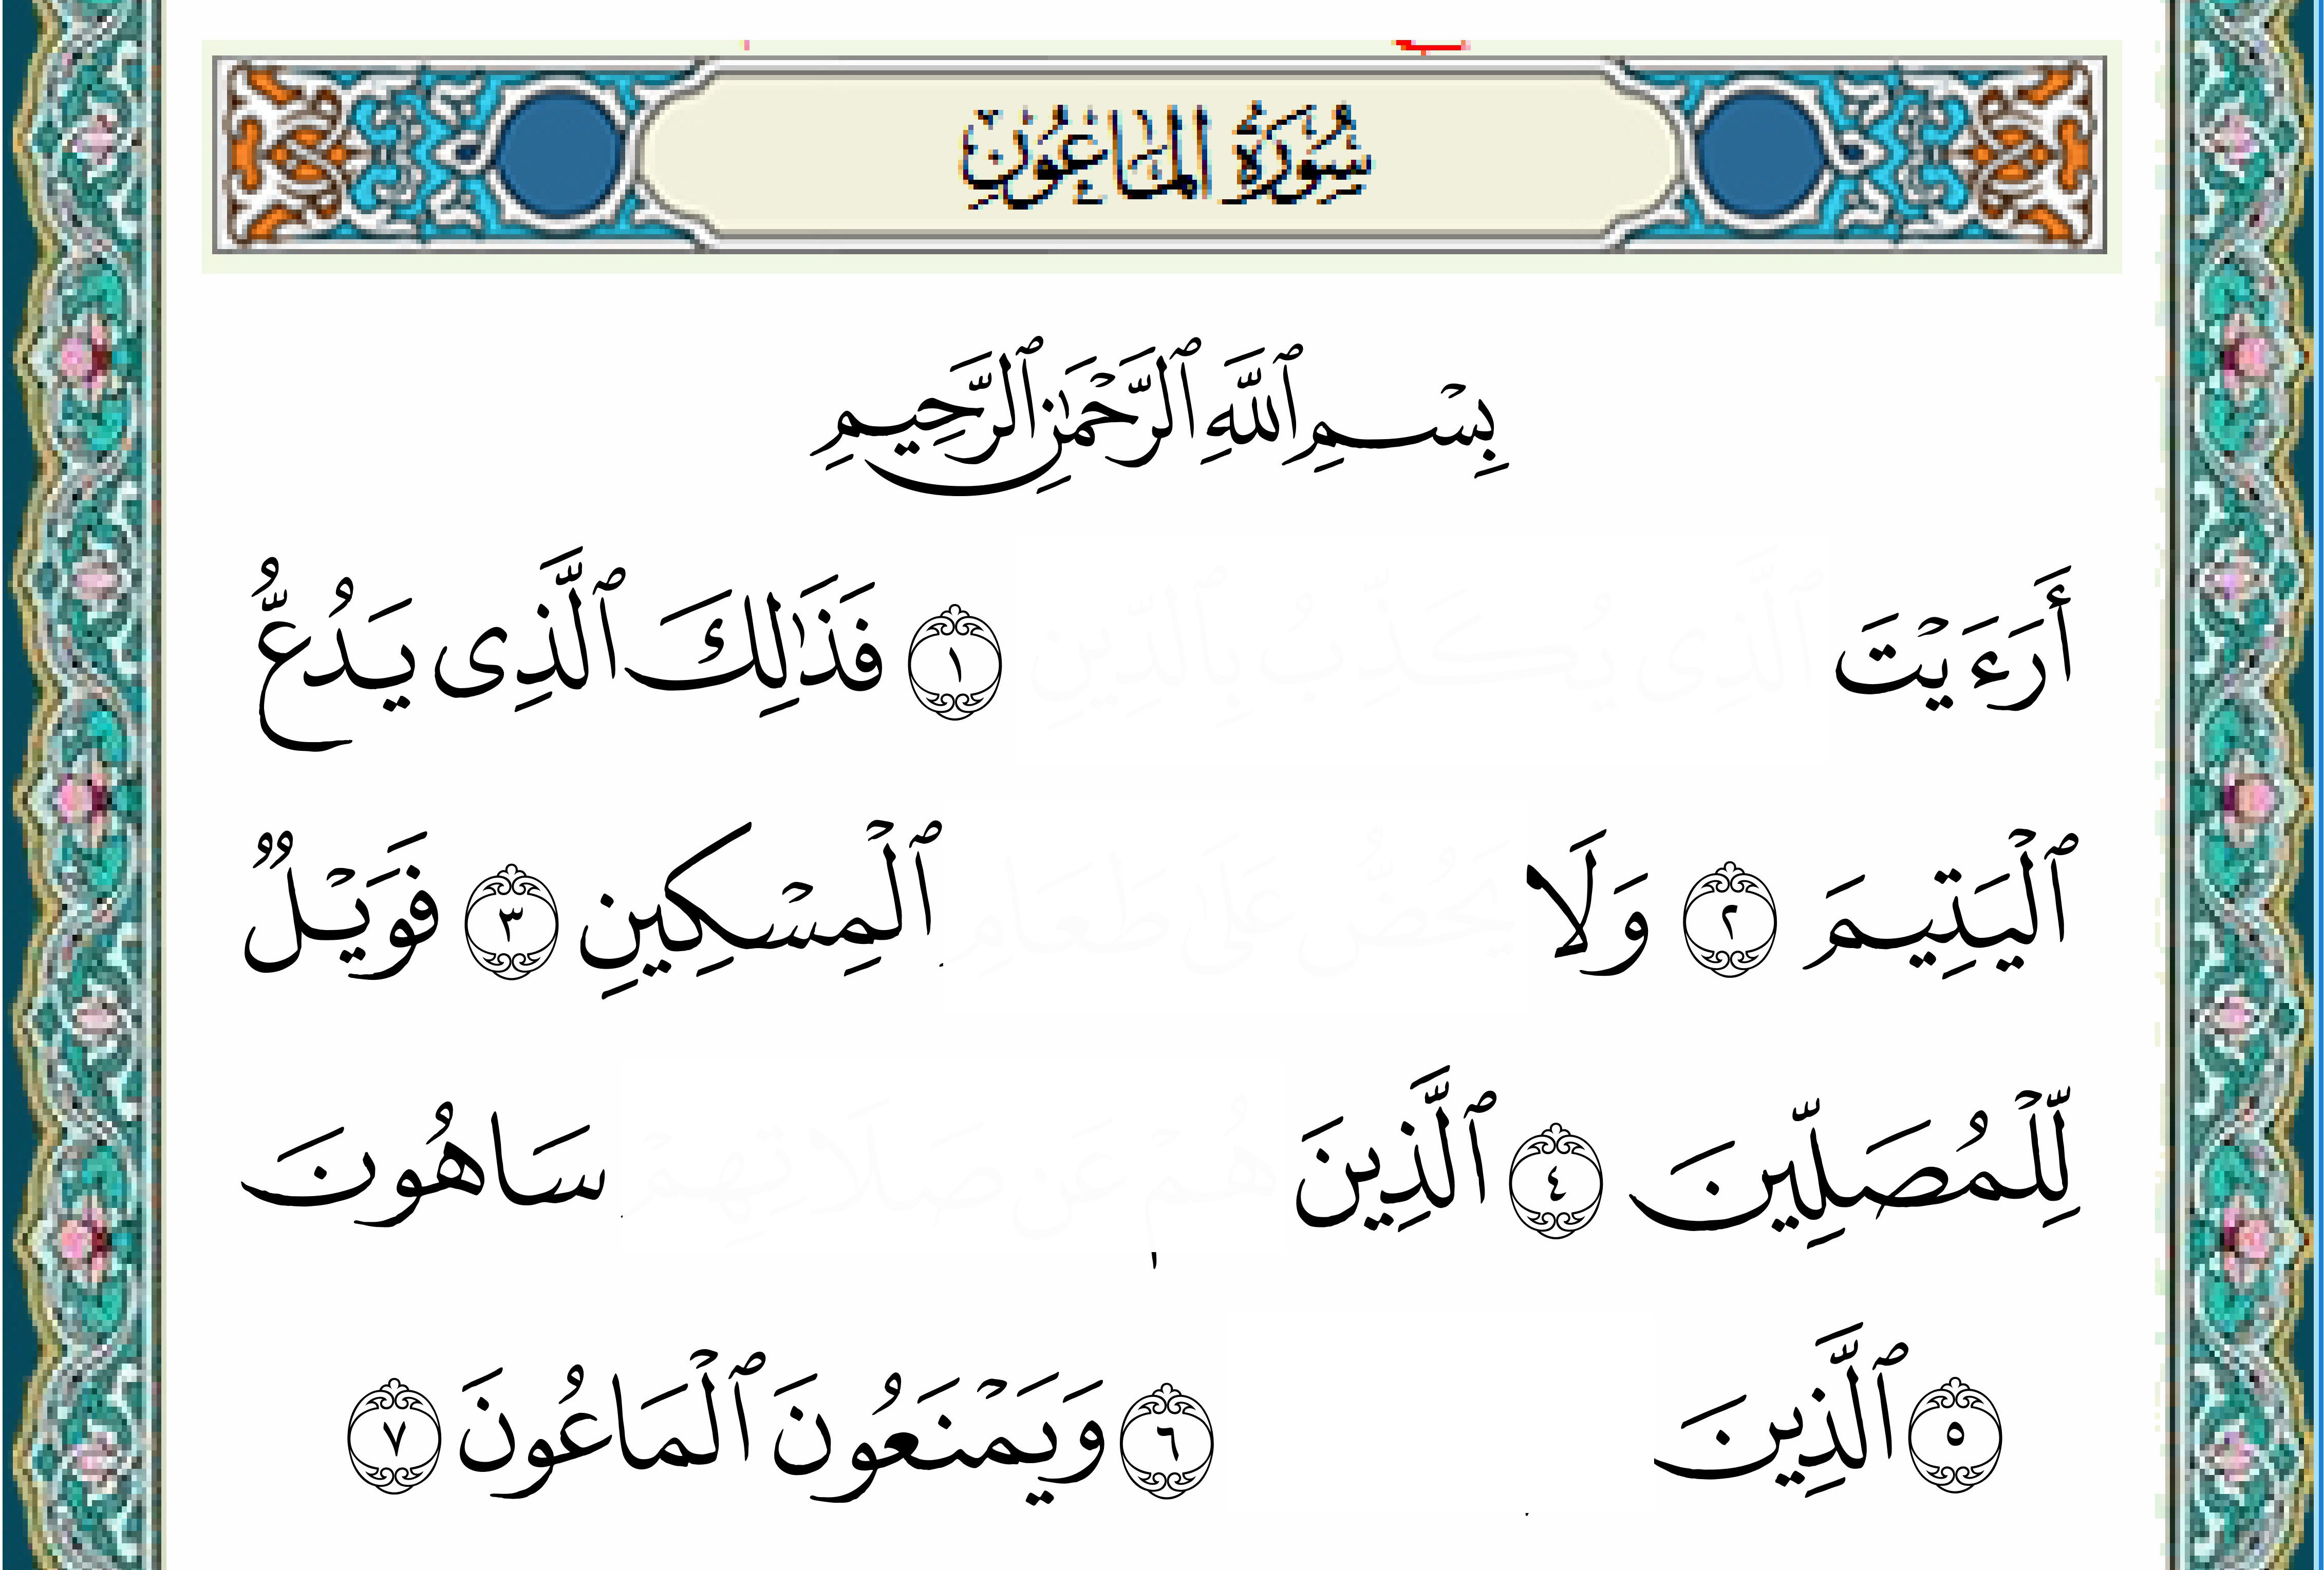 سُورَةُ المَاعُونِ
بِسْمِ ٱللَّهِ ٱلرَّحْمَٰنِ ٱلرَّحِيمِ
أَرَءَيْتَ ١ فَذَٰلِكَ ٱلَّذِى يَدُعُّ
ٱلْيَتِيمَ ٢ وَلَا ٱلْمِسْكِينِ ٣ فَوَيْلٌ
لِّلْمُصَلِّينَ ٤ ٱلَّذِينَ سَاهُونَ
٥ ٱلَّذِينَ ٦ وَيَمْنَعُونَ ٱلْمَاعُونَ ٧